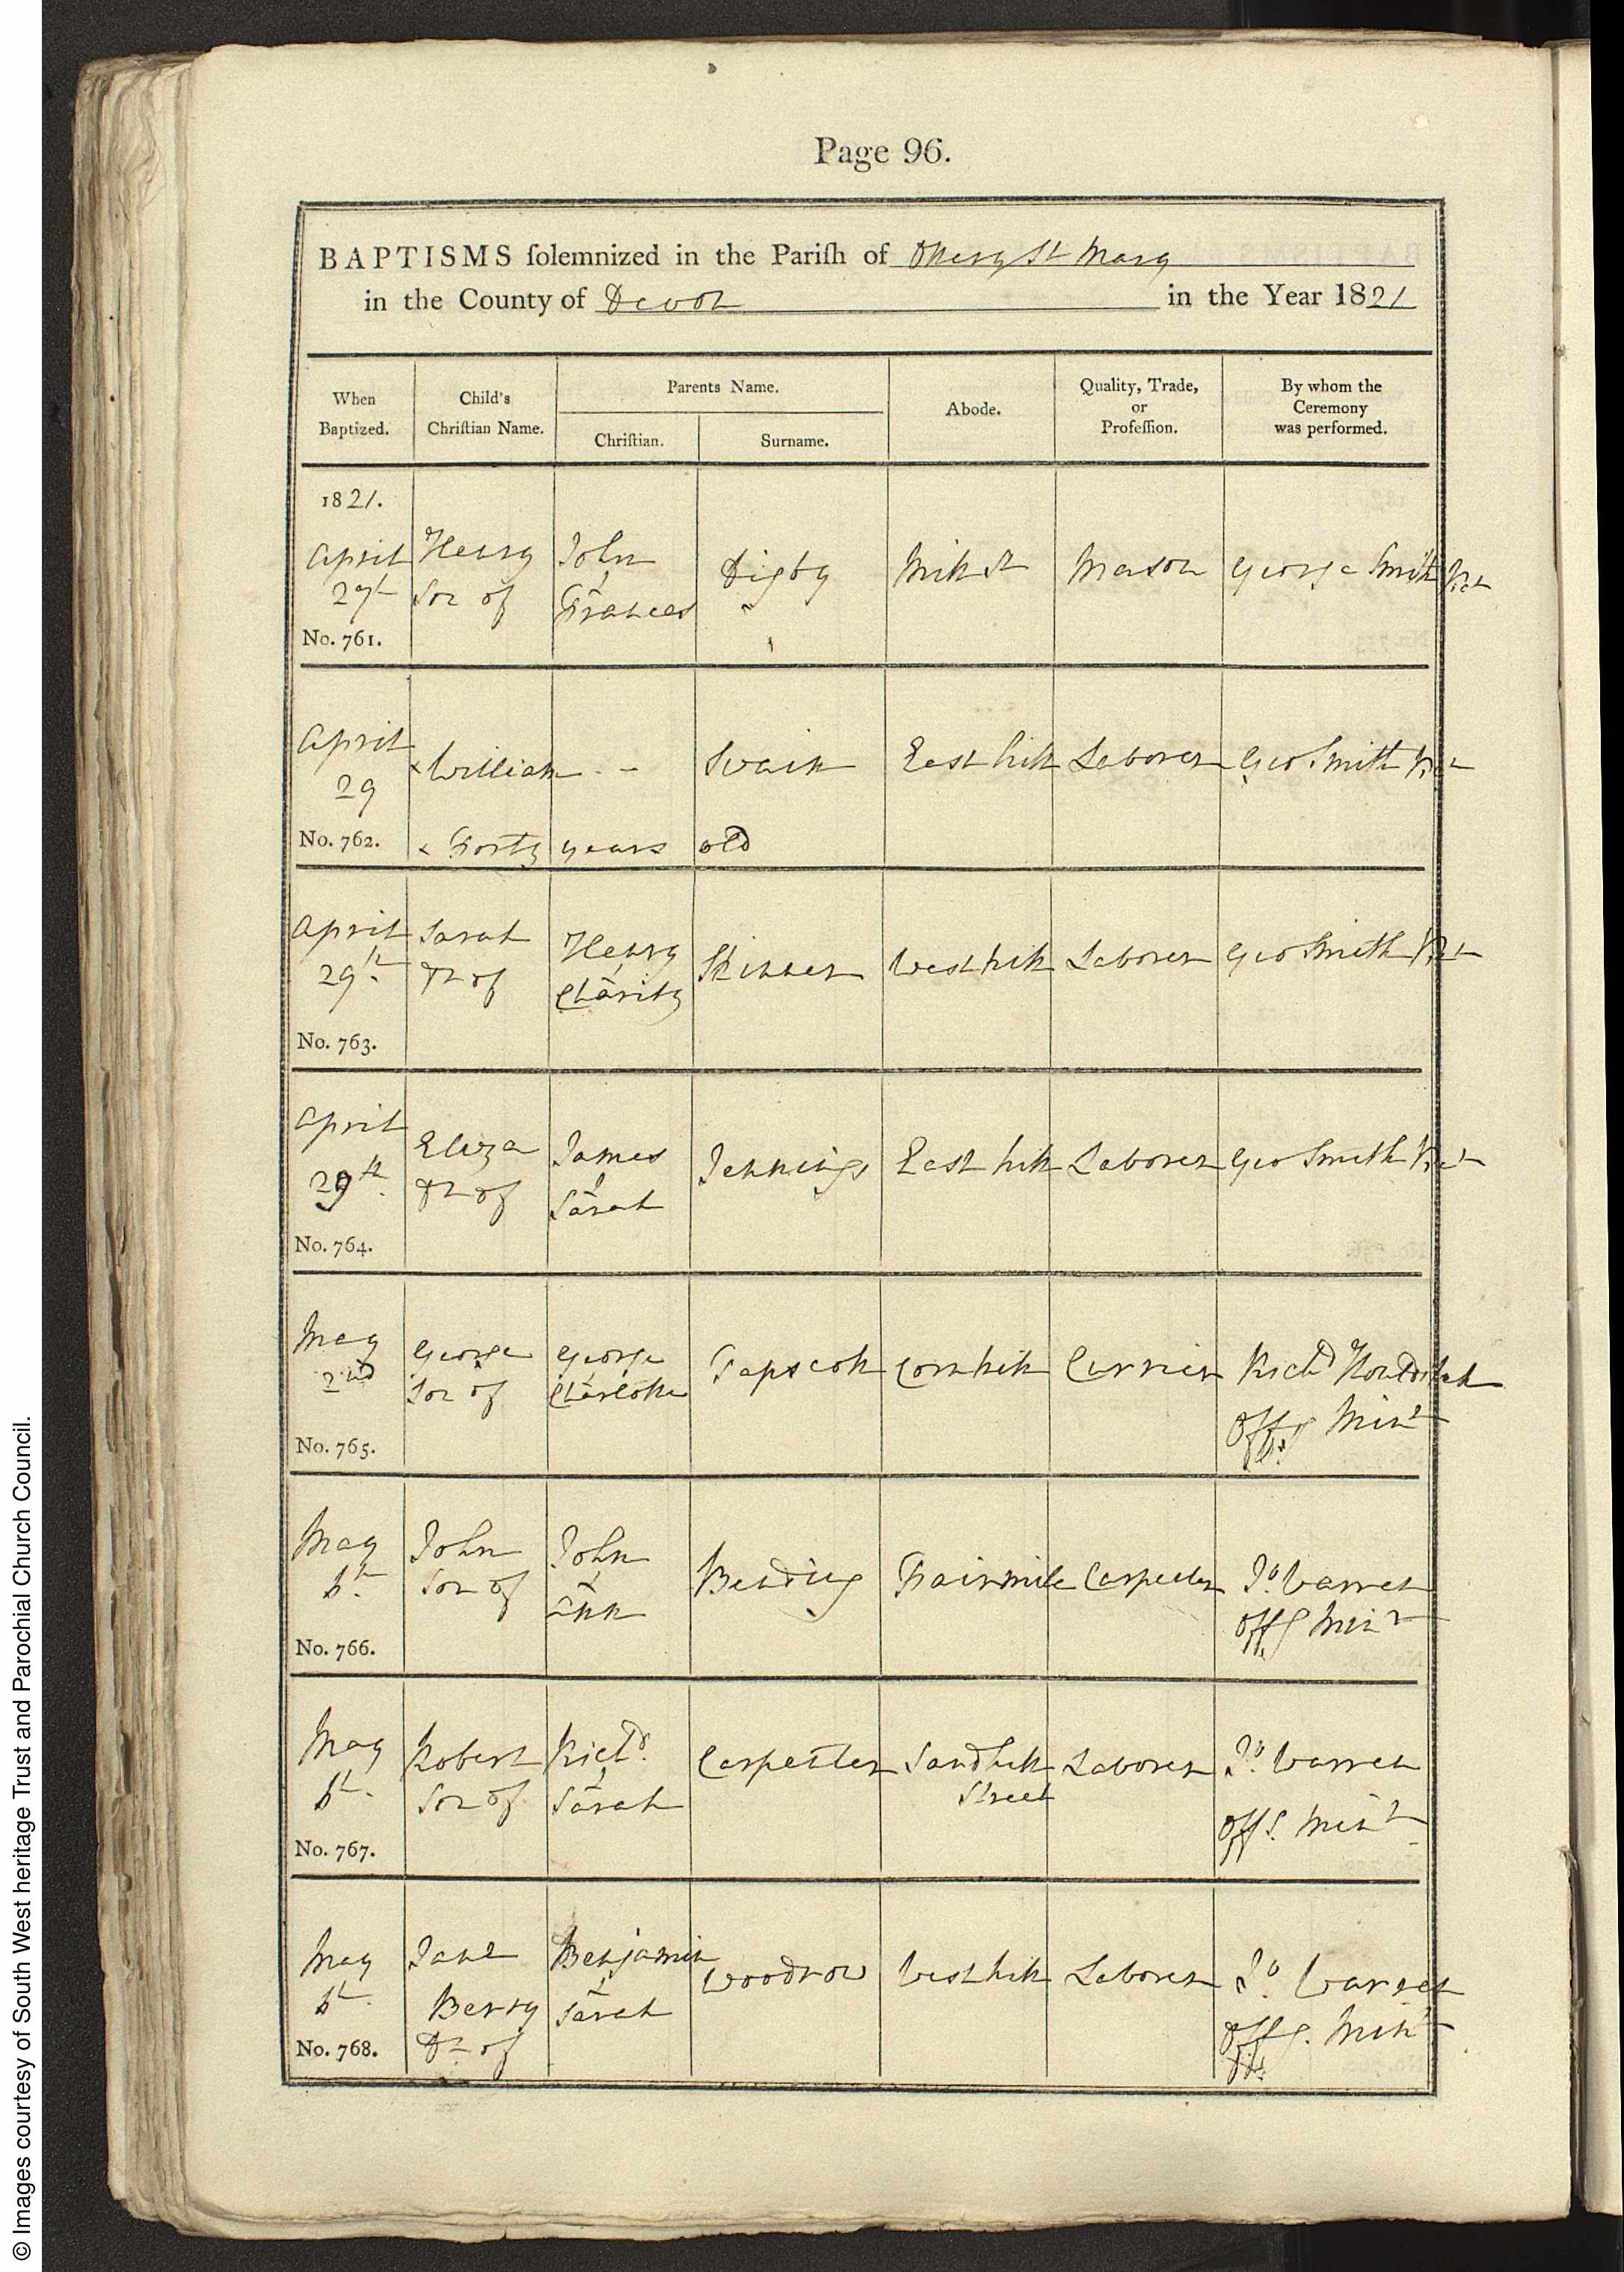 Page 96.
BAPTISMS ſolemnized in the Pariſh of Ottery St Mary
in the County of Devon in the Year 1821
When Baptized. Child's Chriſtian Name. Parents Name. Chriſtian. Surname. Abode. Quality, Trade, or Profeſſion. By whom the Ceremony was performed.
1821.
April Henry John Digby Mill St Mason George Smith Vicr
27th Son of & Frances
No. 761.
April
29 × William - - Swain East hill Laborer Geo Smith Vicr
No. 762. × Forty years old
April Sarah Henry Skinner West hill Laborer Geo Smith Vicr
29th Dr of & Charity
No. 763.
April Eliza James Jennings East hill Laborer Geo Smith Vicr
29th Dr of & Sarah
No. 764.
May George George Tapscott Cornhill Currier Richd Houlditch
2nd Son of & Charlotte Offg Minr
No. 765.
May John John Bending Fairmile Carpenter Jo. Warren
6th Son of & Ann Offg Minr
No. 766.
May Robert Richd. Carpenter Sandhill Laborer Jo. Warren
6th. Son of & Sarah Street Offg. Minr
No. 767.
May Jane Benjamin Woodrow West hill Laborer Jo. Warren
6th. Berry & Sarah Offg. Minr
No. 768. Dr of
© Images courtesy of South West heritage Trust and Parochial Church Council.